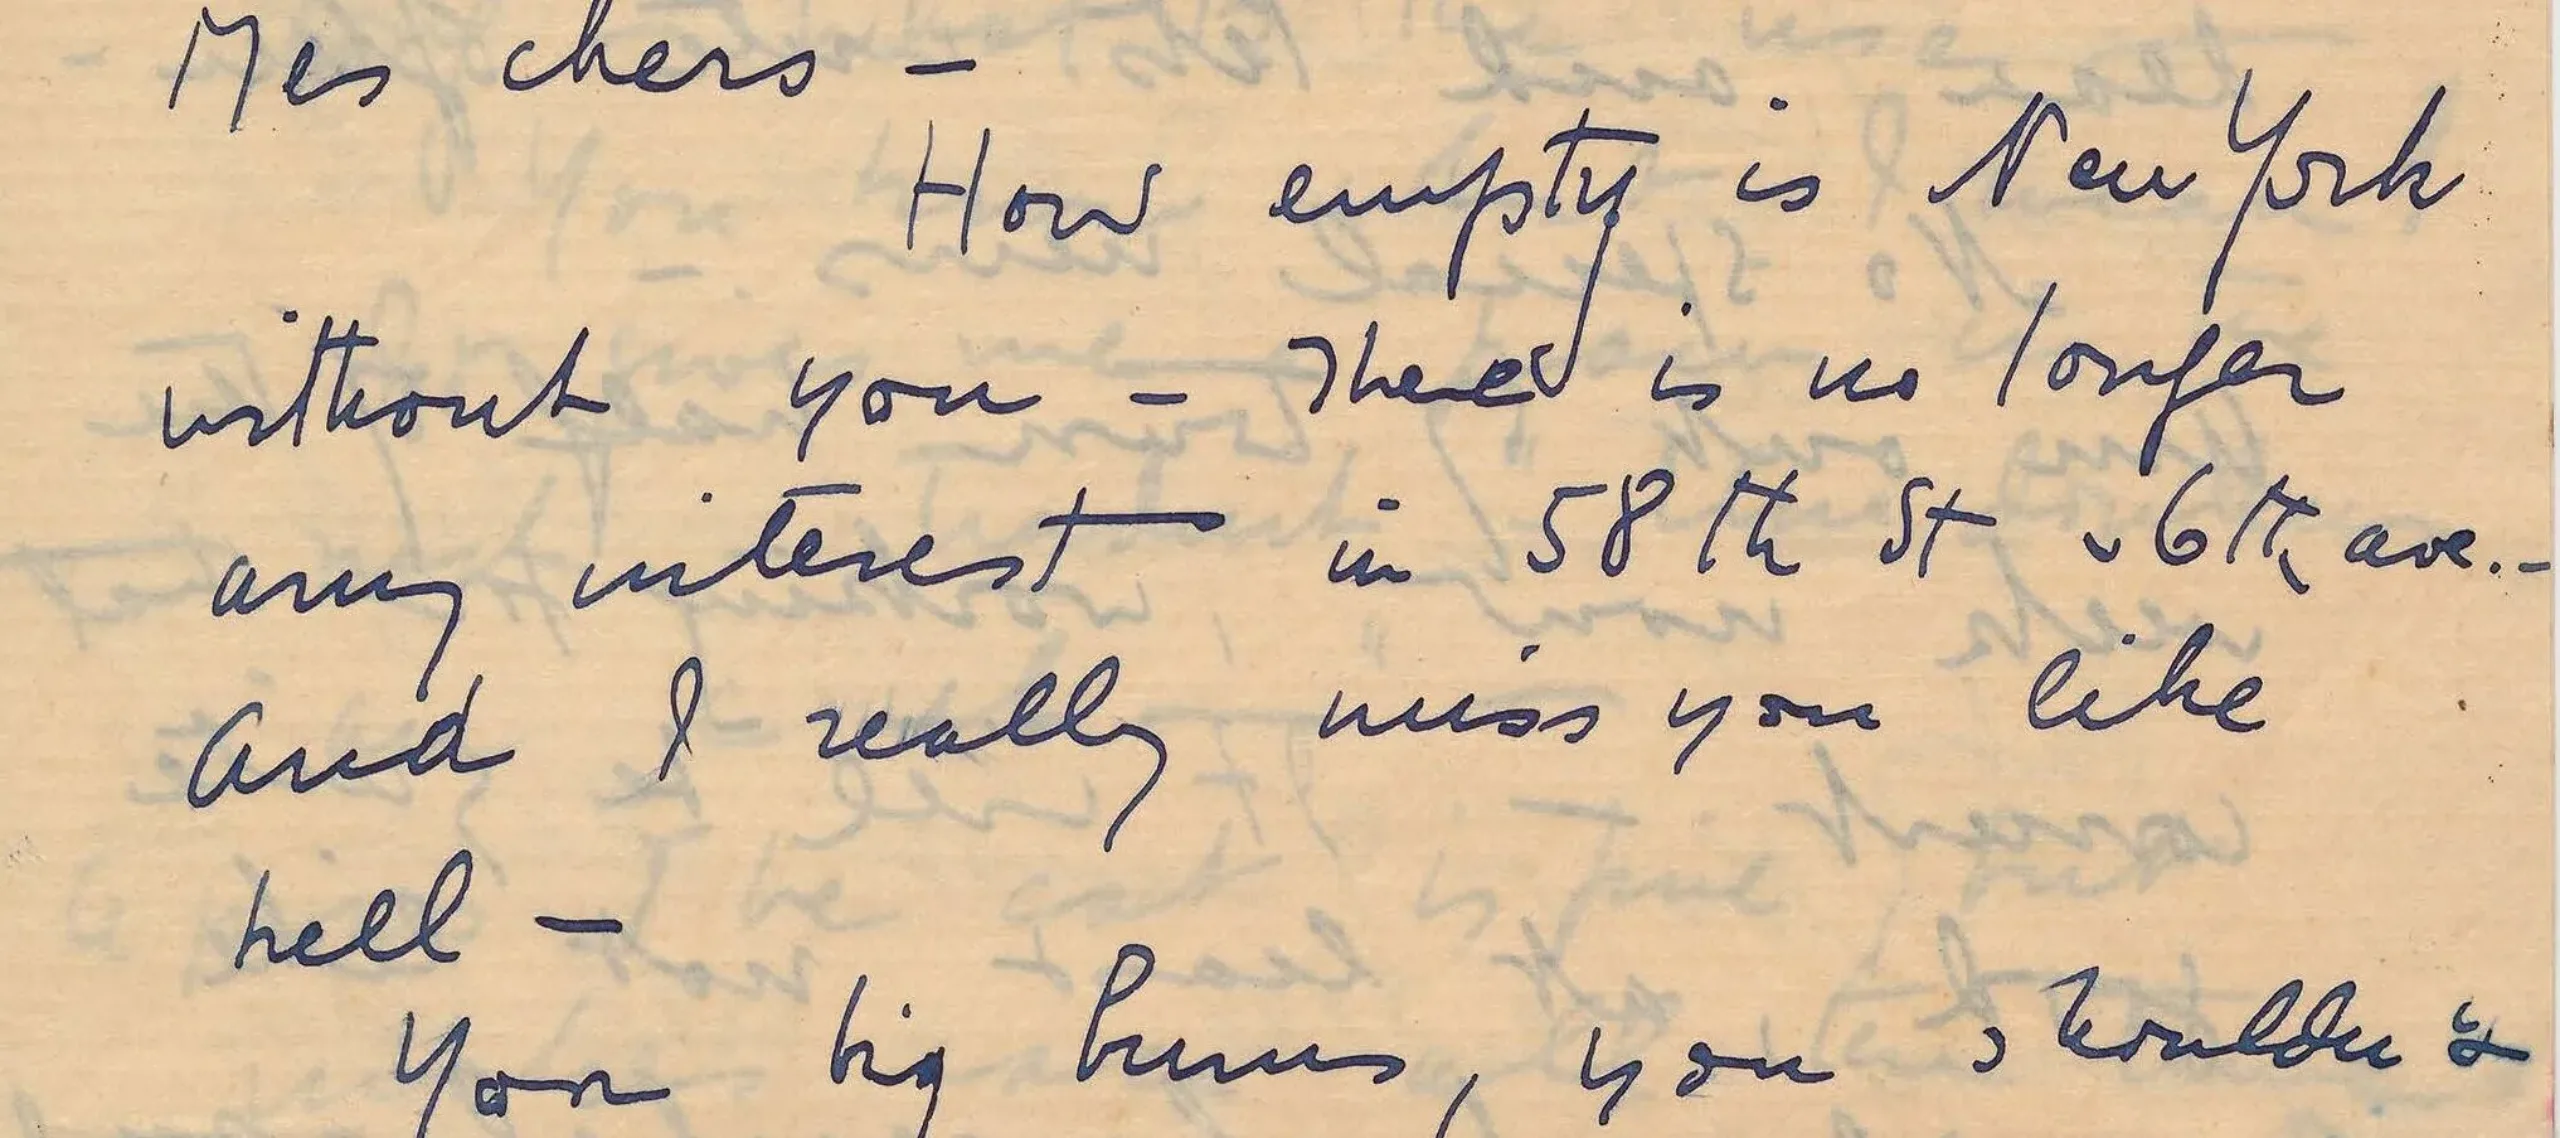 Mes chers –
How empty is New York
without you – There is no longer
any interest in 58th St 6th ave. –
And I really miss you like
hell –
You big bums, you shouldn't